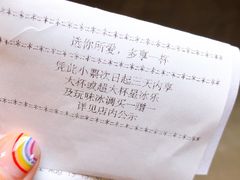 选你所爱，多享一杯
凭此小票次日起三天内享
大杯或超大杯星冰乐
及玩味冰调买一赠一
详见店内公示